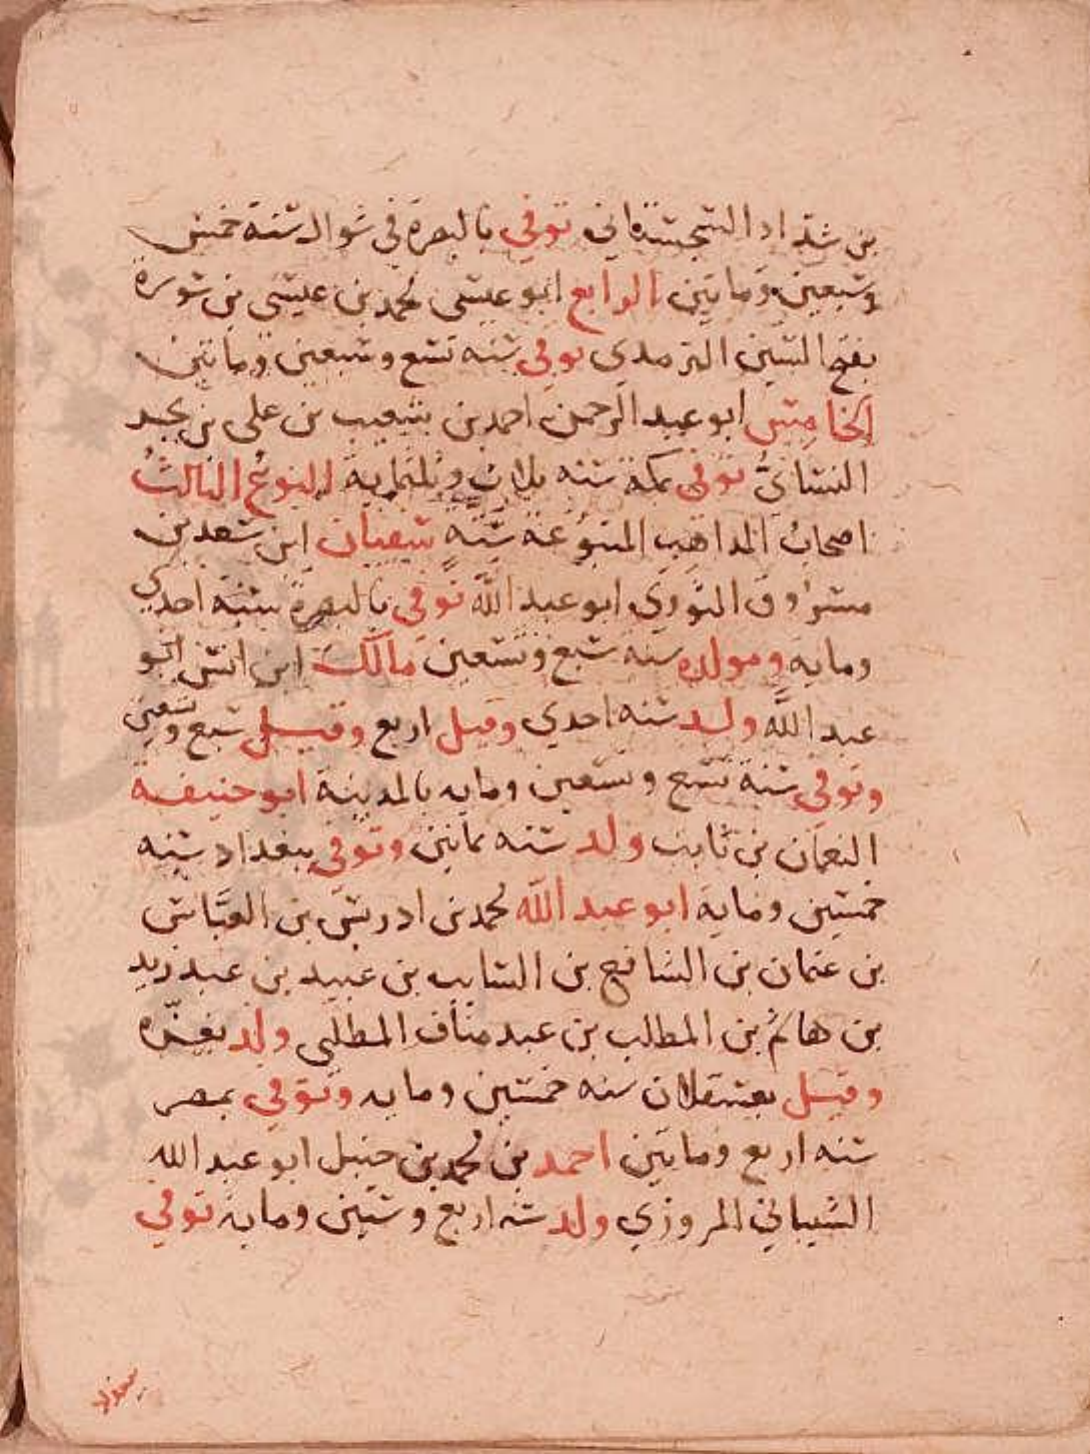 بن شداد السجستاني توفي بالبصرة في شوال سنة خمس
وسبعين ومايتين الرابع ابو عيسى محمد بن عيسى بن سورة
بفتح السين الترمذي توفي سنه تسع وسبعين ومايتين
الخامس ابو عبد الرحمن احمد بن شعيب بن علي بن بحر
النسائيُّ توفي بمكة سنه ثلاث وثلثماية النوعُ الثالثُ
اصحابُ المذاهب المتبوعة ستة سفيان ابن سعد بن
مسروق الثوري ابو عبد اللَّه توفي بالبصرة سنة احدي
وماية ومولده سنة سبع وتسعين مالك ابن انس ابو
عبد اللَّه ولد سنه احدي وقيل اربع وقيل سبع وتسعين
وتوفي سنة تسع وتسعين ومايه بالمدينة ابو حنيفة
النعمان بن ثابت ولد سنه ثمانين وتوفي ببغداد سنه
خمسين وماية ابو عبد اللَّه محمد بن ادريس بن العبَّاس
بن عثمان بن الشافع بن السايب بن عبيد بن عبد زيد
بن هاشم بن المطلب بن عبد مناف المطلبي ولد بغزّة
وقيل بعسقلان سنه خمسين ومايه وتوفي بمصر
سنه اربع ومايتين احمد بن محمد بن حنبل ابو عبد الله
الشيباني المروزي ولد سنه اربع وستين وماية توفي